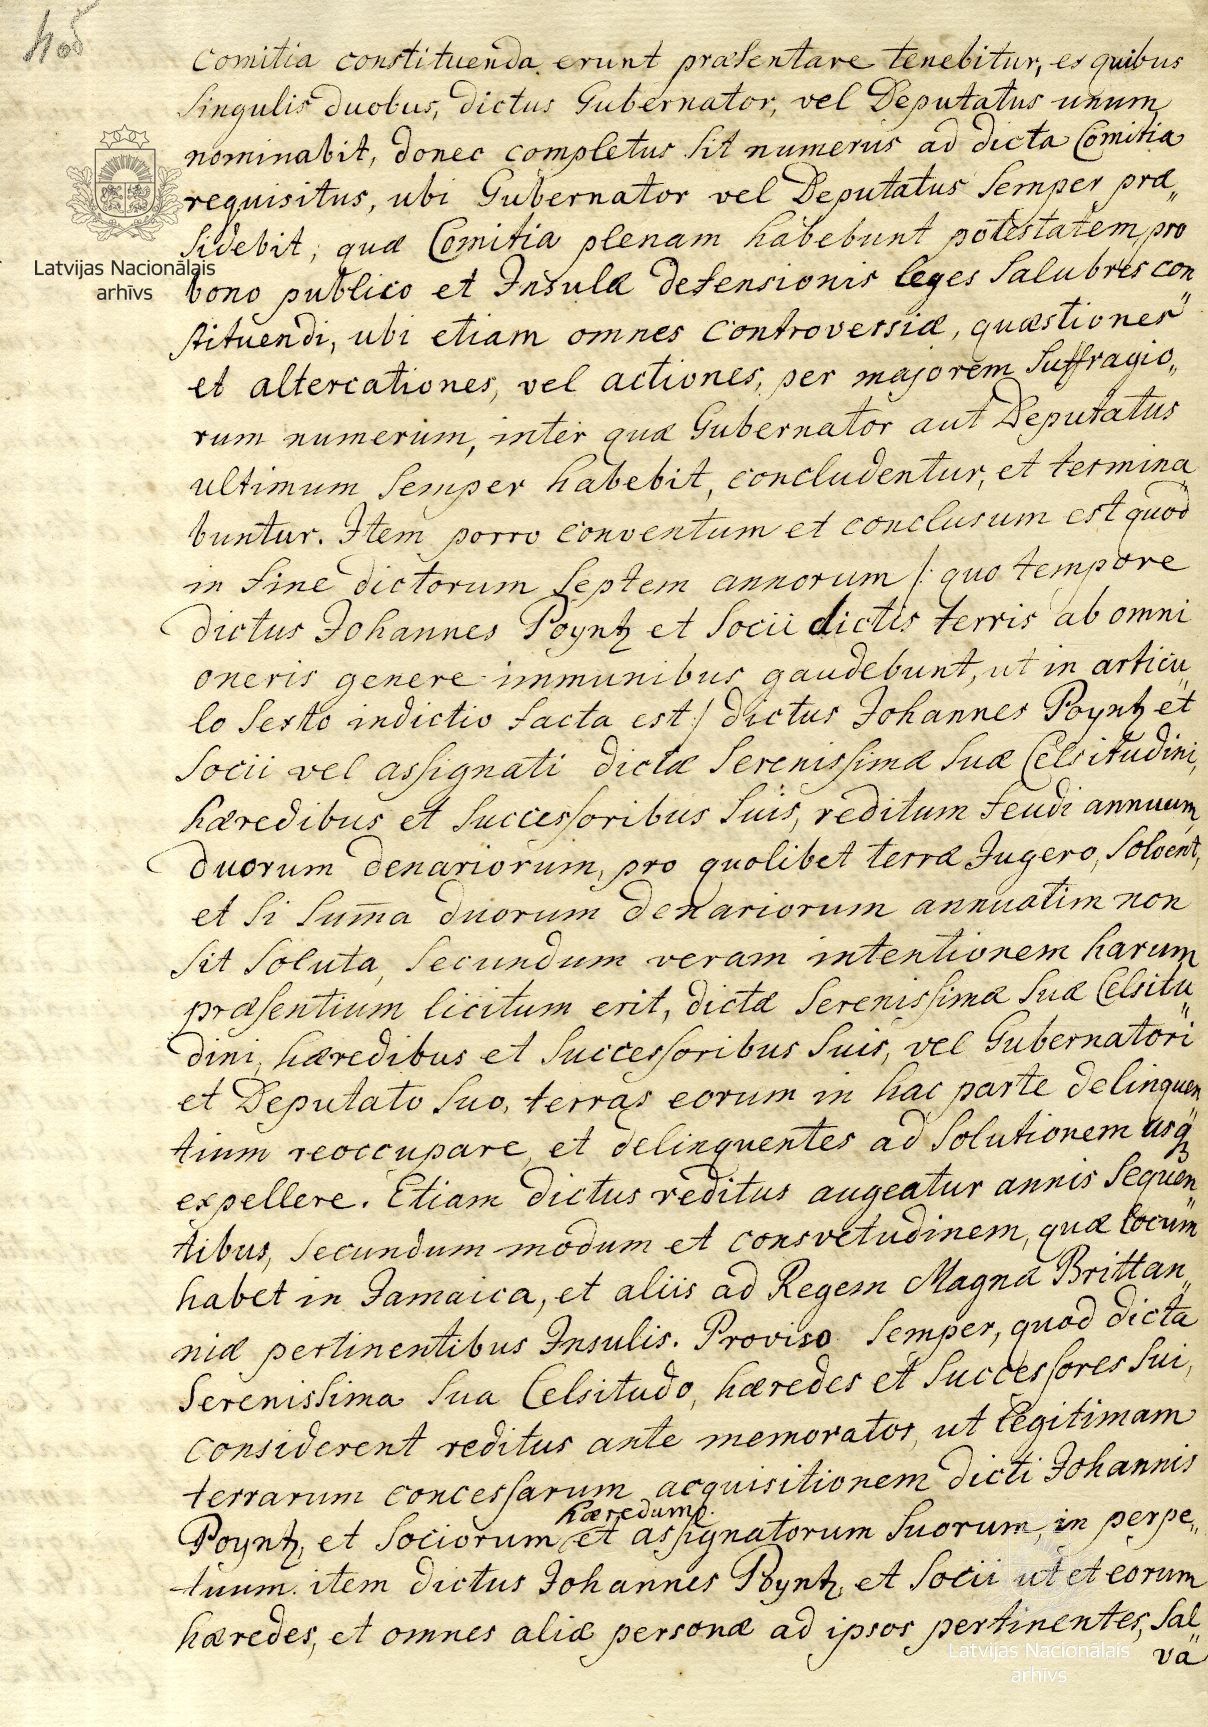 405
Comitia constituenda erunt præsentare tenebitur, ex quibus
singulis duobus, dictus Gubernator, vel Deputatus unum
nominabit, donec completus sit numerus ad dicta Comitia
requisitus, ubi Gubernator vel Deputatus semper præ„
sidebit; quæ Comitia plenam habebunt potestatem, pro
bono publico et Insulæ defensionis leges salubres con„
stituendi, ubi etiam omnes controversiæ, quæstiones
et altercationes, vel actiones, per majorem suffragio„
rum numerum, inter quæ Gubernator aut Deputatus
ultimum semper habebit, concludentur, et termina„
buntur. Item porro conventum et conclusum est quod
in fine dictorum septem annorum /: quo tempore
dictus Johannes Poyntz et Socii dictis terris ab omni
oneris genere immunibus gaudebunt, ut in articu„
lo sexto indictio facta est :/ dictus Johannes Poyntz et
Socii vel assignati dictæ Serenissimæ Suæ Celsitudini,
hæredibus et successoribus suis, reditum feudi annuum
duorum denariorum, pro quolibet terræ Jugero, solvent,
et si sum̄a duorum denariorum annuatim non
sit soluta, secundum veram intentionem harum
præsentium licitum erit, dictæ Serenissimæ Suæ Celsitu„
dini, hæredibus et successoribus suis, vel Gubernatori
et Deputato suo, terras eorum in hac parte delinquen„
tium reoccupare, et delinquentes ad solutionem usq3
expellere. Etiam dictus reditus augeatur annis sequen„
tibus, secundum modum et consvetudinem, quæ locum
habet in Jamaica, et aliis ad Regem Magnæ Brittan„
niæ pertinentibus Insulis. Proviso semper, quod dicta
Serenissima Sua Celsitudo, hæredes et successores sui,
considerent reditus ante memoratos, ut legitimam
terrarum concessarum acquisitionem dicti Johannis
hæredum
Poyntz, et Sociorum et assignatorum suorum, in perpe„
tuum. item dictus Johannes Poyntz, et Socii ut et eorum
hæredes, et omnes aliæ personæ ad ipsos pertinentes, sal„
va
Latvijas Nacionālais
arhīvs
Latvijas Nacionālais
arhīvs